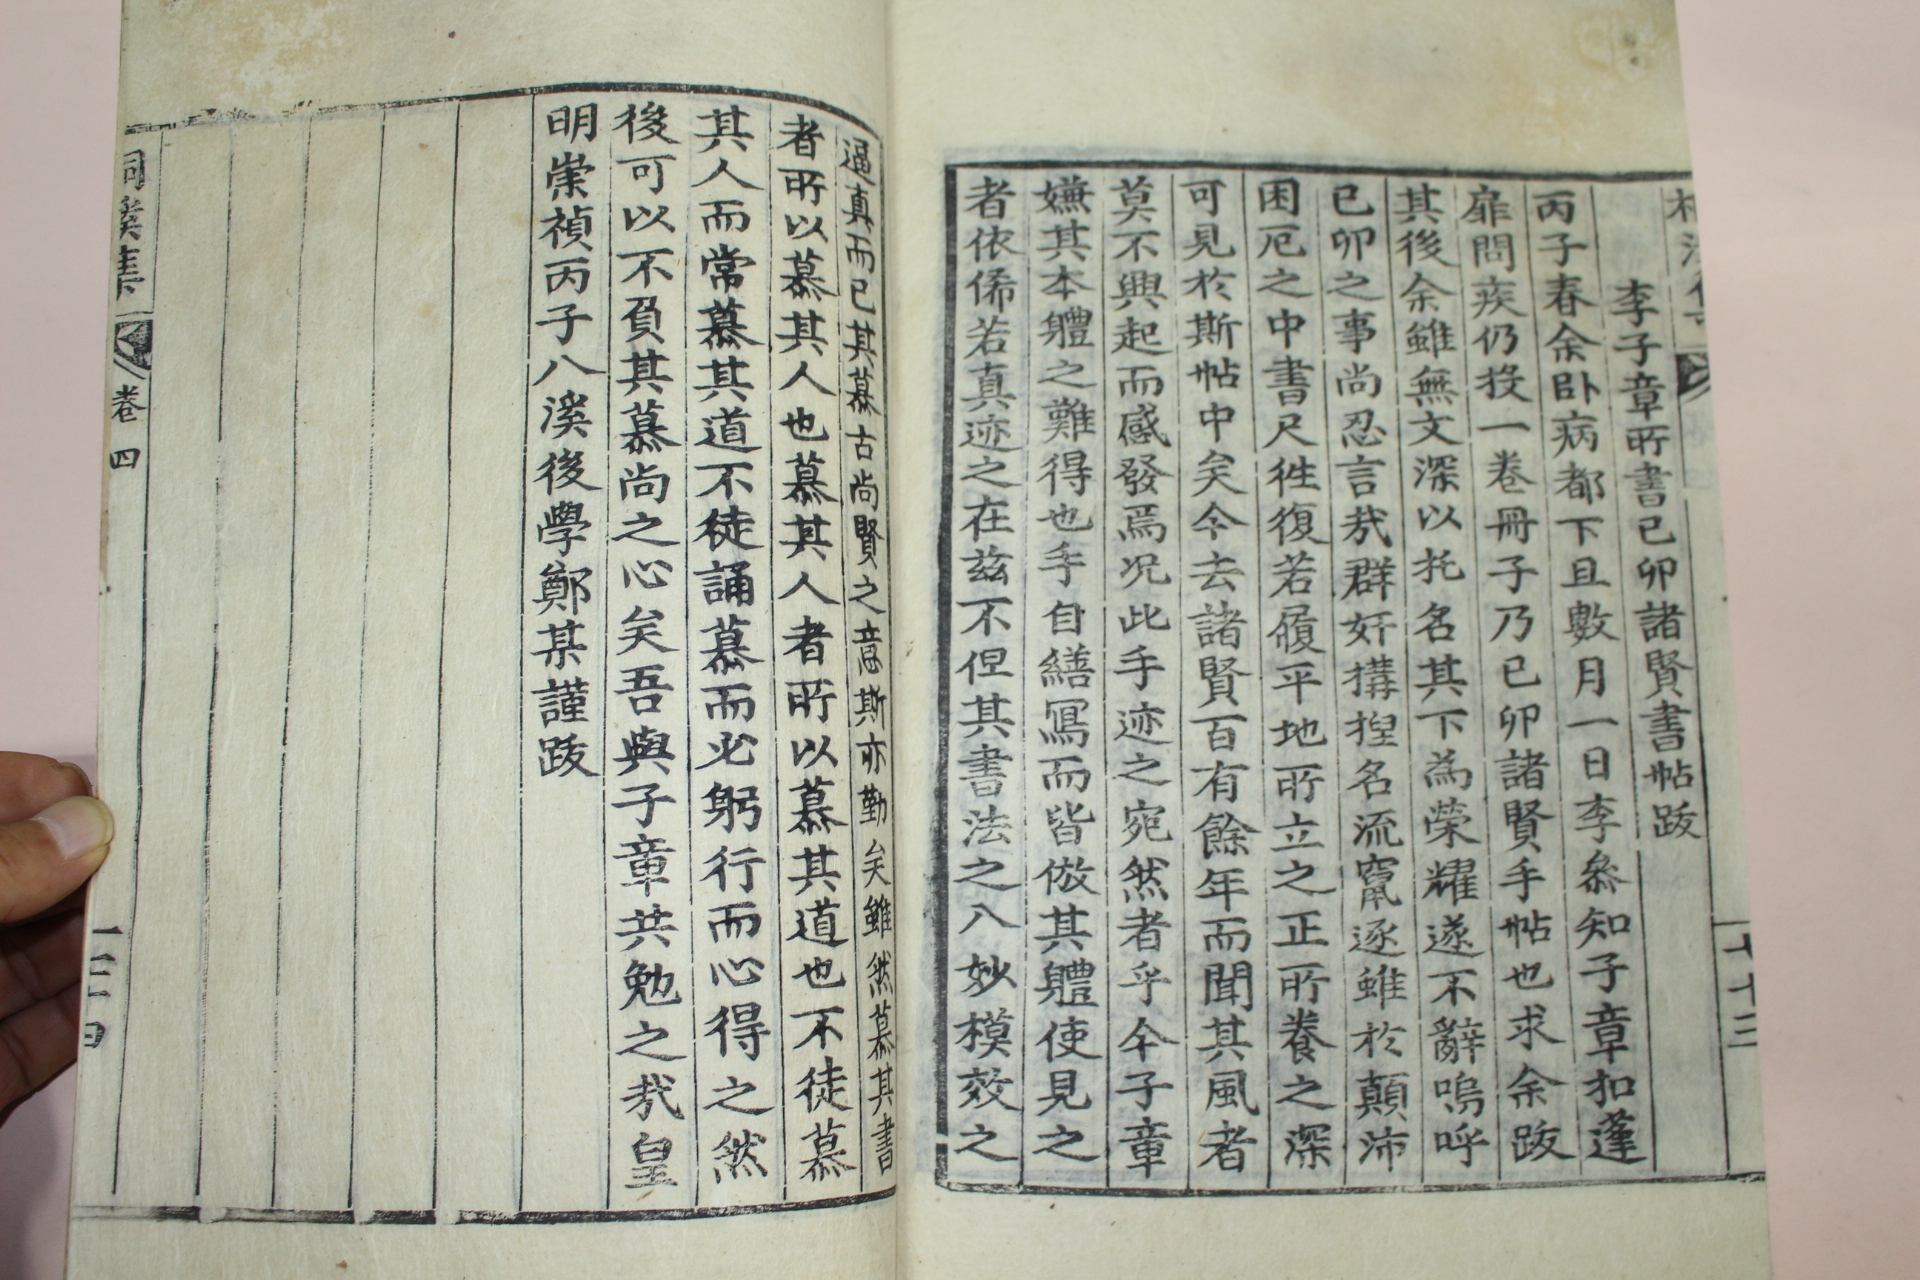 李子章所書己卯諸賢書帖跋
丙子春余卧病都下且數月一日李叅知子章扣蓬
扉問疾仍投一卷冊子乃己卯諸賢手帖也求余跋
其後余雖無文深以托名其下為榮耀遂不辭嗚呼
己卯之事尚忍言㦲群奸搆揑名流竄逐雖於顛沛
困厄之中書尺徃復若履平地所立之正所養之深
可見於斯帖中矣今去諸賢百有餘年而聞其風者
莫不興起而感發焉况此手迹之宛然者乎今子章
嫌其本體之難得也手自繕寫而皆倣其體使見之
者依俙若真迹之在茲不但其書法之入妙模效之
逼真而已其慕古尚賢之意斯亦勤矣雖然慕其書
者所以慕其人也慕其人者所以慕其道也不徒慕
其人而常慕其道不徒誦慕而必躬行而心得之然
後可以不負其慕尚之心矣吾與子章共勉之㦲皇
明崇禎丙子八溪後學鄭某謹跋
溪集
卷四